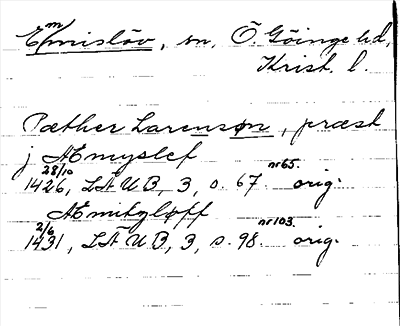 Emmislöv, sn, Ö. Göinge hd,
Krist. l.
Pæther Larensøn, præst
j Æmyslef
28/10 1426, LÄUB, 3, s. 67. nr 65. orig.
Æmitzløff
2/6 1431, LÄUB, 3, s. 98. nr 103. orig.